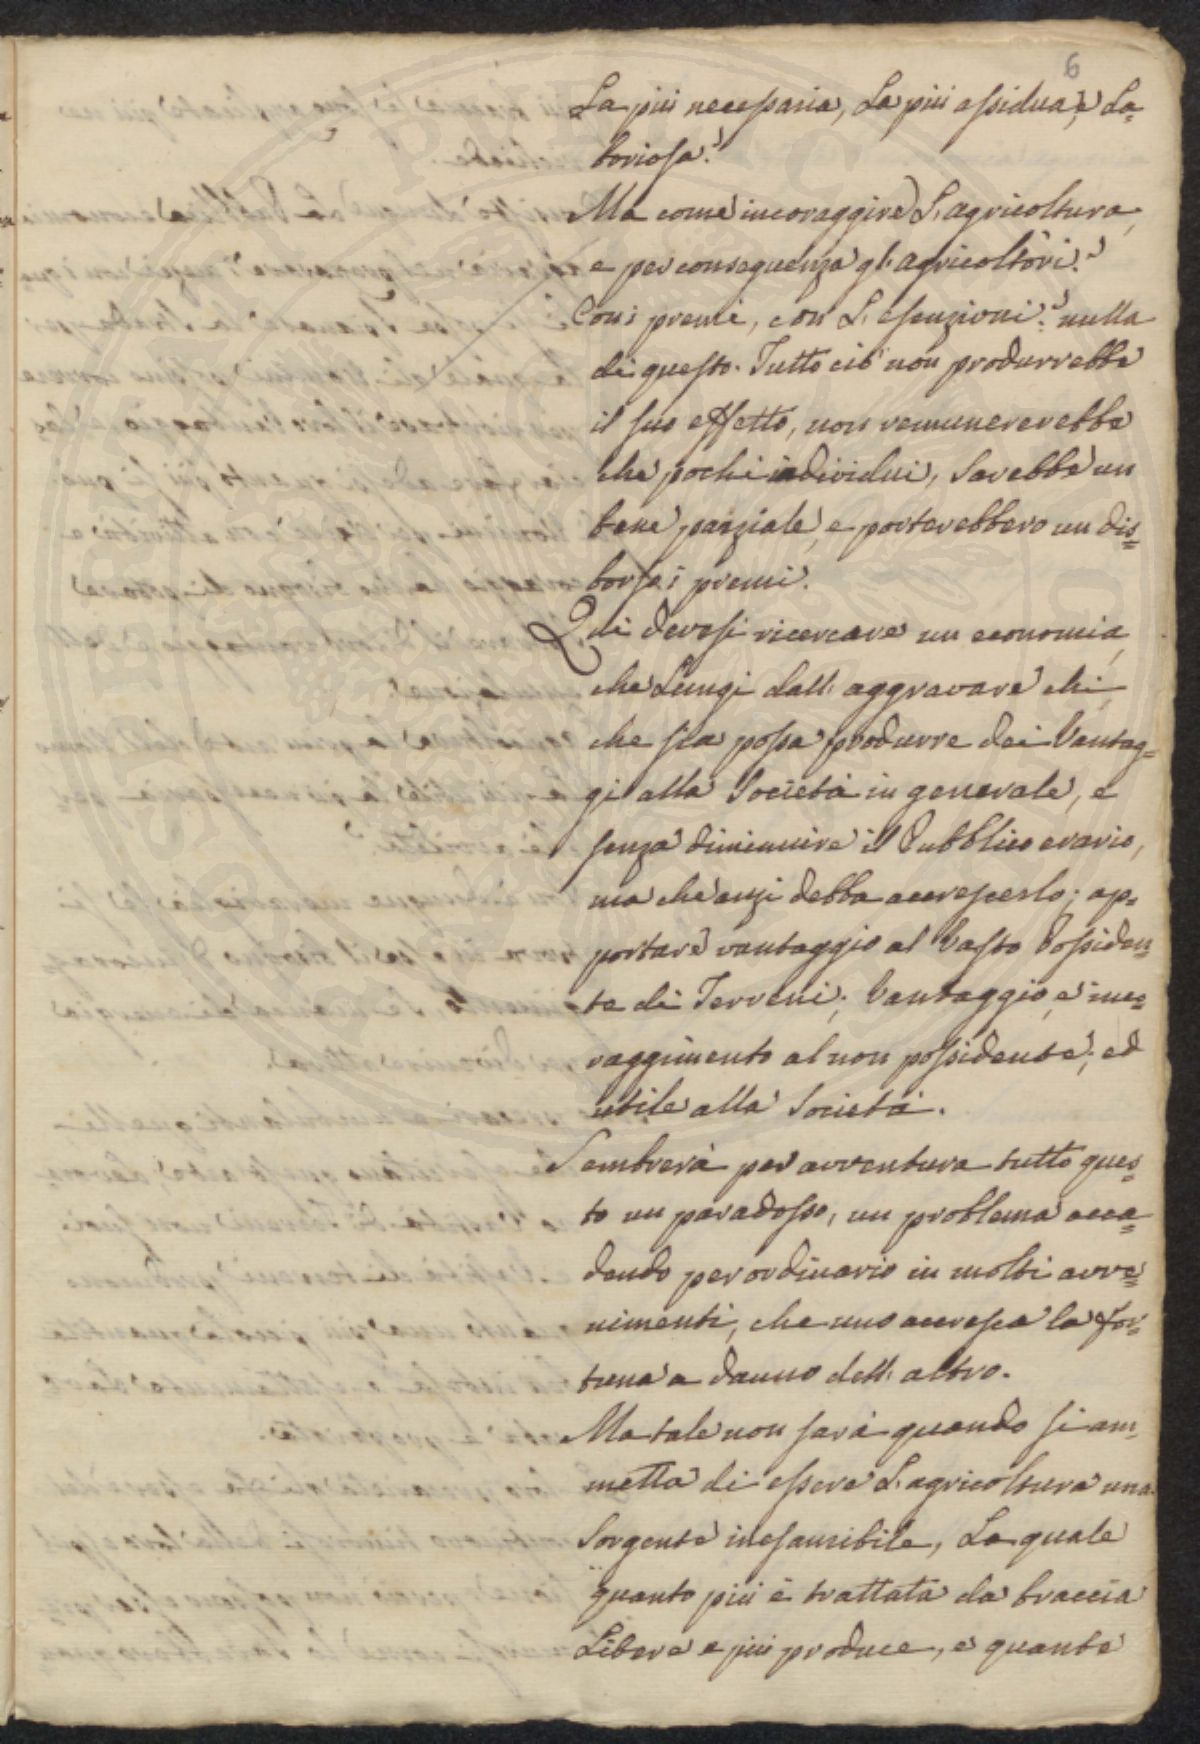 6
La più necessaria, La più assidua, e La=
boriosa?
Ma come incoraggire L'agricoltura,
e per conseguenza gl'agricoltori?
Con i premi, con L'esenzioni? nulla
di questo. Tutto ciò non produrrebbe
il suo effetto, non remunererebbe
che pochi individui, Sarebbe un
bene parziale, e porterebbero un dis=
borso i premi.
Qui devesi ricercare un economia,
che Lungi dall'aggravare chi,
che sia possa produrre dei Vantag=
gi alla Società in generale, e
senza diminuire il Pubblico erario,
ma che anzi debba accrescerlo; ap=
portare vantaggio al Vasto Possiden=
te di Terreni; Vantaggio, e inco=
raggimento al non possidente; ed
utile alla Società.
Sembrerà per avventura tutto ques=
to un paradosso, un problema acca=
dendo per ordinario in molti avve=
nimenti, che uno accresca la for=
tuna a danno dell'altro.
Ma tale non sarà quando si am=
metta di essere L'agricoltura una
Sorgente inesauribile, La quale
quanto più è trattata da braccia
Libere e più produce, e quante